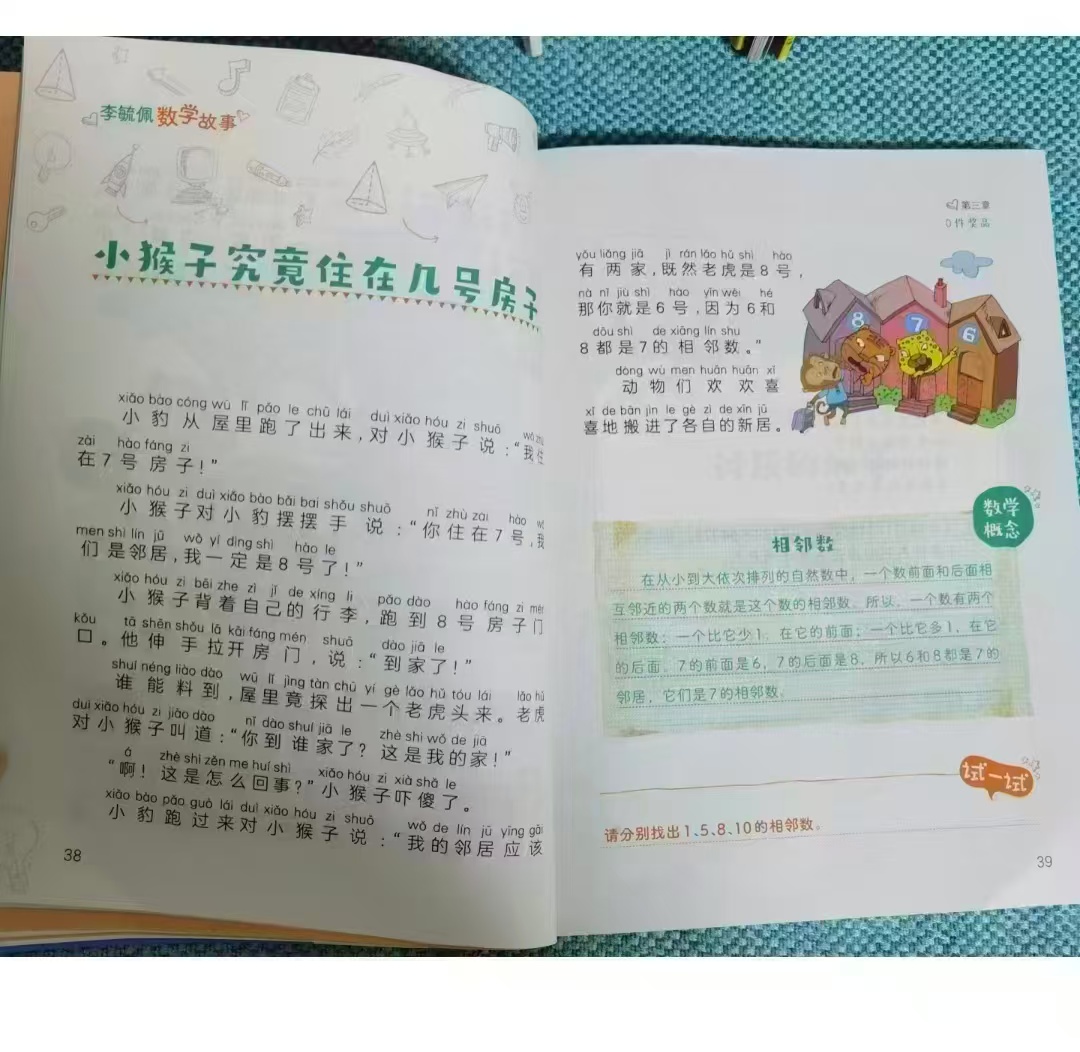 李毓佩数学故事
小猴子究竟住在几号房子
xiǎo bào cóng wū lǐ pǎo le chū lái duì xiǎo hóu zi shuō
小豹从屋里跑了出来,对小猴子说:“我住
zài hào fáng zi
在7号房子!”
xiǎo hóu zi duì xiǎo bào bǎi bai shǒu shuō nǐ zhù zài hào
小猴子对小豹摆摆手说:“你住在7号,我
men shì lín jū wǒ yí dìng shì hào le
们是邻居,我一定是8号了!”
xiǎo hóu zi bēi zhe zì jǐ de xíng li pǎo dào hào fáng zi mén
小猴子背着自己的行李,跑到8号房子门
kǒu tā shēn shǒu lā kāi fáng mén shuō dào jiā le
口。他伸手拉开房门,说:“到家了!”
shuí néng liào dào wū lǐ jìng tàn chū yí gè lǎo hǔ tóu lái lǎo hǔ
谁能料到,屋里竟探出一个老虎头来。老虎
duì xiǎo hóu zi jiào dào nǐ dào shuí jiā le zhè shì wǒ de jiā
对小猴子叫道:“你到谁家了?这是我的家!”
á zhè shì zěn me huí shì xiǎo hóu zi xià shǎ le
“啊!这是怎么回事?”小猴子吓傻了。
xiǎo bào pǎo guò lái duì xiǎo hóu zi shuō wǒ de lín jū yīng gāi
小豹跑过来对小猴子说:“我的邻居应该
38
第三章
0件奖品
yǒu liǎng jiā jì rán lǎo hǔ shì hào
有两家,既然老虎是8号,
nà nǐ jiù shì hào yīn wèi hé
那你就是6号,因为6和
dōu shì de xiāng lín shù
8都是7的相邻数。”
dòng wù men huān huān xǐ
动物们欢欢喜
xǐ de bān jìn le gè zì de xīn jū
喜地搬进了各自的新居。
8
7
6
数学
概念
相邻数
在从小到大依次排列的自然数中,一个数前面和后面相
互邻近的两个数就是这个数的相邻数。所以,一个数有两个
相邻数:一个比它少1,在它的前面;一个比它多1,在它
的后面。7的前面是6,7的后面是8,所以6和8都是7的
邻居,它们是7的相邻数。
试一试
请分别找出1、5、8、10的相邻数。
39